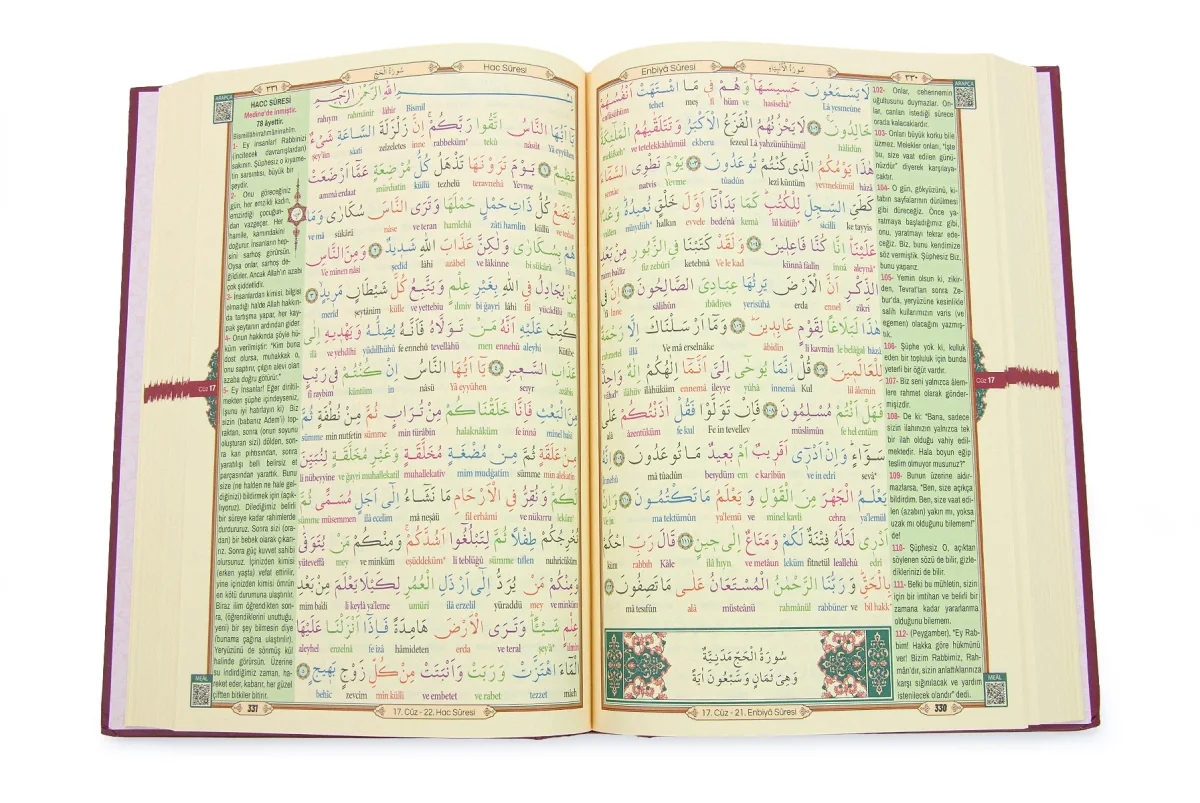 Enbiyâ Sûresi
سُورَةُ الْاَنْبِيَاءِ
٣٣٠
ARAPÇA
لَا يَسْمَعُونَ حَسِيسَهَا وَهُمْ فِي مَا اشْتَهَتْ اَنْفُسُهُمْ
Lâ yesmeûne hasîsehâ ve hüm fî meş tehet
خَالِدُونَ لَا يَحْزُنُهُمُ الْفَزَعُ الْاَكْبَرُ وَتَتَلَقّٰيهُمُ الْمَلٰٓئِكَةُ
hâlidûn Lâ yahzünühümül fezeul ekberu ve tetelekkâhümül
هٰذَا يَوْمُكُمُ الَّذ۪ي كُنْتُمْ تُوعَدُونَ يَوْمَ نَطْوِي السَّمَٓاءَ
hâzâ yevmükümül lezî küntüm tûadûn Yevme natvis semâe
كَطَيِّ السِّجِلِّ لِلْكُتُبِ كَمَا بَدَأْنَٓا اَوَّلَ خَلْقٍ نُع۪يدُهُ وَعْدًا
ke tayyis sicilli lil kütüb kemâ bede'nâ evvele halkın nüıydüh
عَلَيْنَا اِنَّا كُنَّا فَاعِل۪ينَ وَلَقَدْ كَتَبْنَا فِي الزَّبُورِ مِنْ بَعْدِ
aleynâ innâ künnâ fâılîn Ve le kad ketebnâ fiz zebûri
الذِّكْرِ اَنَّ الْاَرْضَ يَرِثُهَا عِبَادِيَ الصَّالِحُونَ اِنَّ ف۪ي
zikri ennel erda yerisühâ ıbâdiyes sâlihûn İnne fî
هٰذَا لَبَلَاغًا لِقَوْمٍ عَابِد۪ينَ وَمَٓا اَرْسَلْنَاكَ اِلَّا رَحْمَةً
hâzâ le belâğal li kavmin âbidîn Ve mâ erselnâke illâ
لِلْعَالَم۪ينَ قُلْ اِنَّمَا يُوحٰٓى اِلَيَّ اَنَّمَٓا اِلٰهُكُمْ اِلٰهٌ وَاحِدٌ
lil âlemîn Kul innemâ yûhâ ileyye ennemâ ilâhüküm ilâhüv
فَهَلْ اَنْتُمْ مُسْلِمُونَ فَاِنْ تَوَلَّوْا فَقُلْ اٰذَنْتُكُمْ عَلٰى
fe hel entüm müslimûn Fe in tevellev fe kul âzentüküm alâ
سَوَٓاءٍ وَاِنْ اَدْر۪ٓي اَقَر۪يبٌ اَمْ بَع۪يدٌ مَا تُوعَدُونَ اِنَّهُ
sevâ' ve in edrî e karîbün em beıydüm mâ tûadûn
يَعْلَمُ الْجَهْرَ مِنَ الْقَوْلِ وَيَعْلَمُ مَا تَكْتُمُونَ وَاِنْ
ya'lemül cehra minel kavli ve ya'lemü ma tektümûn Ve in
اَدْر۪ي لَعَلَّهُ فِتْنَةٌ لَكُمْ وَمَتَاعٌ اِلٰى ح۪ينٍ قَالَ رَبِّ احْكُمْ
edrî leallehû fitnetül leküm ve metâun ilâ hıyn Kâle rabbih küm
بِالْحَقِّ وَرَبُّنَا الرَّحْمٰنُ الْمُسْتَعَانُ عَلٰى مَا تَصِفُونَ
bil hakk ve rabbüner rahmânül müsteânü alâ mâ tesıfûn
سُورَةُ الْحَجِّ مَدَنِيَّةٌ
وَهِيَ ثَمَانٍ وَسَبْعُونَ اٰيَةً
102- Onlar, cehennemin
uğultusunu duymazlar. On-
lar, canları istediği sürece
orada kalacaklardır.
103- Onları büyük korku bile
üzmez. Melekler onları, "İşte
bu, size vaat edilen günü-
nüzdür" diyerek karşılaya-
caktır.
104- O gün, gökyüzünü, ki-
tabın sayfalarının dürülmesi
gibi düreceğiz. Önce ya-
ratmaya başladığımız gibi,
onu, yaratmayı tekrar ede-
ceğiz. Biz, bunu kendimize
söz vermiştik. Şüphesiz Biz,
bunu yaparız.
105- Yemin olsun ki, zikir-
den, Tevrat'tan sonra Ze-
bur'da, yeryüzüne kesinlikle
salih kullarımızın varis (ve
egemen) olacağını yazmış-
tık.
106- Şüphe yok ki, kulluk
eden bir topluluk için bunda
yeterli bir öğüt vardır.
107- Biz seni yalnızca âlem-
lere rahmet olarak gönder-
mişizdir.
108- De ki: "Bana, sadece
sizin ilahınızın yalnızca tek
bir ilah olduğu vahiy edil-
mektedir. Hala boyun eğip
teslim olmuyor musunuz?"
109- Bunun üzerine aldır-
mazlarsa, "Ben, size açıkça
bildirdim. Ben, size vaat edi-
len (azabın) yakın mı, yoksa
uzak mı olduğunu bilemem!"
de!
110- Şüphesiz O, açıktan
söylenen sözü de bilir, gizle-
diklerinizi de bilir.
111- Belki bu mühletin, sizin
için bir imtihan ve belirli bir
zamana kadar yararlanma
olduğunu bilemem.
112- (Peygamber), "Ey Rab-
bim! Hakka göre hükmünü
ver! Bizim Rabbimiz, Rah-
mân'dır, sizin anlattıklarınıza
karşı sığınılacak ve yardım
istenilecek olandır" dedi.
Cüz 17
MEÂL
17. Cüz - 21. Enbiyâ Sûresi
330
Hac Sûresi
سُورَةُ الْحَجِّ
٣٣١
ARAPÇA
بِسْمِ اللّٰهِ الرَّحْمٰنِ الرَّح۪يمِ
Bismil lâhir rahmânir rahıym
يَٓا اَيُّهَا النَّاسُ اتَّقُوا رَبَّكُمْ اِنَّ زَلْزَلَةَ السَّاعَةِ شَيْءٌ
Yâ eyyühen nâsüt tekû rabbeküm inne zelzeletes sâati şey'ün
عَظ۪يمٌ يَوْمَ تَرَوْنَهَا تَذْهَلُ كُلُّ مُرْضِعَةٍ عَمَّٓا اَرْضَعَتْ
azıym Yevme teravnehâ tezhelü küllü mürdıatin ammâ erdaat
وَتَضَعُ كُلُّ ذَاتِ حَمْلٍ حَمْلَهَا وَتَرَى النَّاسَ سُكَارٰى وَمَا
ve tedau küllü zâti hamlin hamlehâ ve teran nâse sükârâ ve mâ
هُمْ بِسُكَارٰى وَلٰكِنَّ عَذَابَ اللّٰهِ شَد۪يدٌ وَمِنَ النَّاسِ
hüm bi sükârâ ve lâkinne azâbel lâhi şedîd Ve minen nâsi
مَنْ يُجَادِلُ فِي اللّٰهِ بِغَيْرِ عِلْمٍ وَيَتَّبِعُ كُلَّ شَيْطَانٍ مَر۪يدٍ
yücâdilü fil lâhi bi ğayri ılmiv ve yettebiu külle şeytânim merîd
كُتِبَ عَلَيْهِ اَنَّهُ مَنْ تَوَلَّاهُ فَاَنَّهُ يُضِلُّهُ وَيَهْد۪يهِ اِلٰى
Kütibe aleyhi ennehû men tevellâhü fe ennehû yüdıllühû ve yehdîhi ilâ
عَذَابِ السَّع۪يرِ يَٓا اَيُّهَا النَّاسُ اِنْ كُنْتُمْ ف۪ي رَيْبٍ
azâbis seıyr Yâ eyyühen nâsü in küntüm fî raybim
مِنَ الْبَعْثِ فَاِنَّا خَلَقْنَاكُمْ مِنْ تُرَابٍ ثُمَّ مِنْ نُطْفَةٍ ثُمَّ
minel ba'si fe innâ halaknâküm min türâbin sümme min nutfetin sümme
مِنْ عَلَقَةٍ ثُمَّ مِنْ مُضْغَةٍ مُخَلَّقَةٍ وَغَيْرِ مُخَلَّقَةٍ لِنُبَيِّنَ
min alekatin sümme mim mudğatim muhallekativ ve ğayri muhallekatil li nübeyyine
لَكُمْ وَنُقِرُّ فِي الْاَرْحَامِ مَا نَشَٓاءُ اِلٰٓى اَجَلٍ مُسَمًّى ثُمَّ
leküm ve nükırru fil erhâmi mâ neşâü ilâ ecelim müsemmen sümme
نُخْرِجُكُمْ طِفْلًا ثُمَّ لِتَبْلُغُٓوا اَشُدَّكُمْ وَمِنْكُمْ مَنْ يُتَوَفّٰى
nuhricüküm tıflen sümme li teblüğû eşüddeküm ve minküm mey yüteveffâ
وَمِنْكُمْ مَنْ يُرَدُّ اِلٰٓى اَرْذَلِ الْعُمُرِ لِكَيْلَا يَعْلَمَ مِنْ بَعْدِ
ve minküm mey yüraddü ilâ erzelil umüri li keylâ ya'leme mim ba'di
عِلْمٍ شَيْـًٔا وَتَرَى الْاَرْضَ هَامِدَةً فَاِذَٓا اَنْزَلْنَا عَلَيْهَا
ılmin şey'â ve teral erda hâmideten fe izâ enzelnâ aleyhel
الْمَٓاءَ اهْتَزَّتْ وَرَبَتْ وَاَنْبَتَتْ مِنْ كُلِّ زَوْجٍ بَه۪يجٍ
mâeh tezzet ve rabet ve embetet min külli zevcim behîc
HACC SÛRESİ
Medine'de inmiştir.
78 âyettir.
Bismillâhirrahmânirrahîm.
1- Ey insanlar! Rabbinizi
(incitecek davranışlardan)
sakının. Şüphesiz o kıyame-
tin sarsıntısı, büyük bir
şeydir.
2- Onu göreceğiniz
gün, her emzikli kadın,
emzirdiği çocuğun-
dan vazgeçer. Her
hamile, karnındakini
doğurur. İnsanların hep-
sini sarhoş görürsün.
Oysa onlar, sarhoş de-
ğildirler. Ancak Allah'ın azabı
çok şiddetlidir.
3- İnsanlardan kimisi, bilgisi
olmadığı halde Allah hakkın-
da tartışma yapar, her kay-
pak şeytanın ardından gider.
4- Onun hakkında şöyle hü-
küm verilmiştir: "Kim buna
dost olursa, muhakkak o,
onu saptırır, çılgın alevi olan
azaba doğru götürür."
5- Ey İnsanlar! Eğer diriltil-
mekten şüphe içindeyseniz,
(şunu iyi hatırlayın ki) Biz
sizin (babanız Adem'i) top-
raktan, sonra (onun soyunu
oluşturan sizi) dölden, son-
ra kan pıhtısından, sonra
yaratılışı belli belirsiz et
parçasından yarattık. Bunu
size (ne halden ne hale gel-
diğinizi) bildirmek için (açık-
lıyoruz). Dilediğimiz belirli
bir süreye kadar rahimlerde
durdururuz. Sonra sizi (ora-
dan) bir bebek olarak çıkar-
rız. Sonra güç kuvvet sahibi
olursunuz. İçinizden kimisi
(erken yaşta) vefat ettirilir,
yine içinizden kimisi ömrün
en kötü durumuna ulaştırılır.
Biraz ilim öğrendikten son-
ra, (öğrendiklerini unuttuğu,
yeni) bir şey bilmesin diye
(bunama çağına ulaştırılır).
Yeryüzünü de sönmüş kül
halinde görürsün. Üzerine
su indirdiğimiz zaman, ha-
reket eder, kabarır, her güzel
çiftten bitkiler bitirir.
Cüz 17
MEÂL
331
17. Cüz - 22. Hac Sûresi